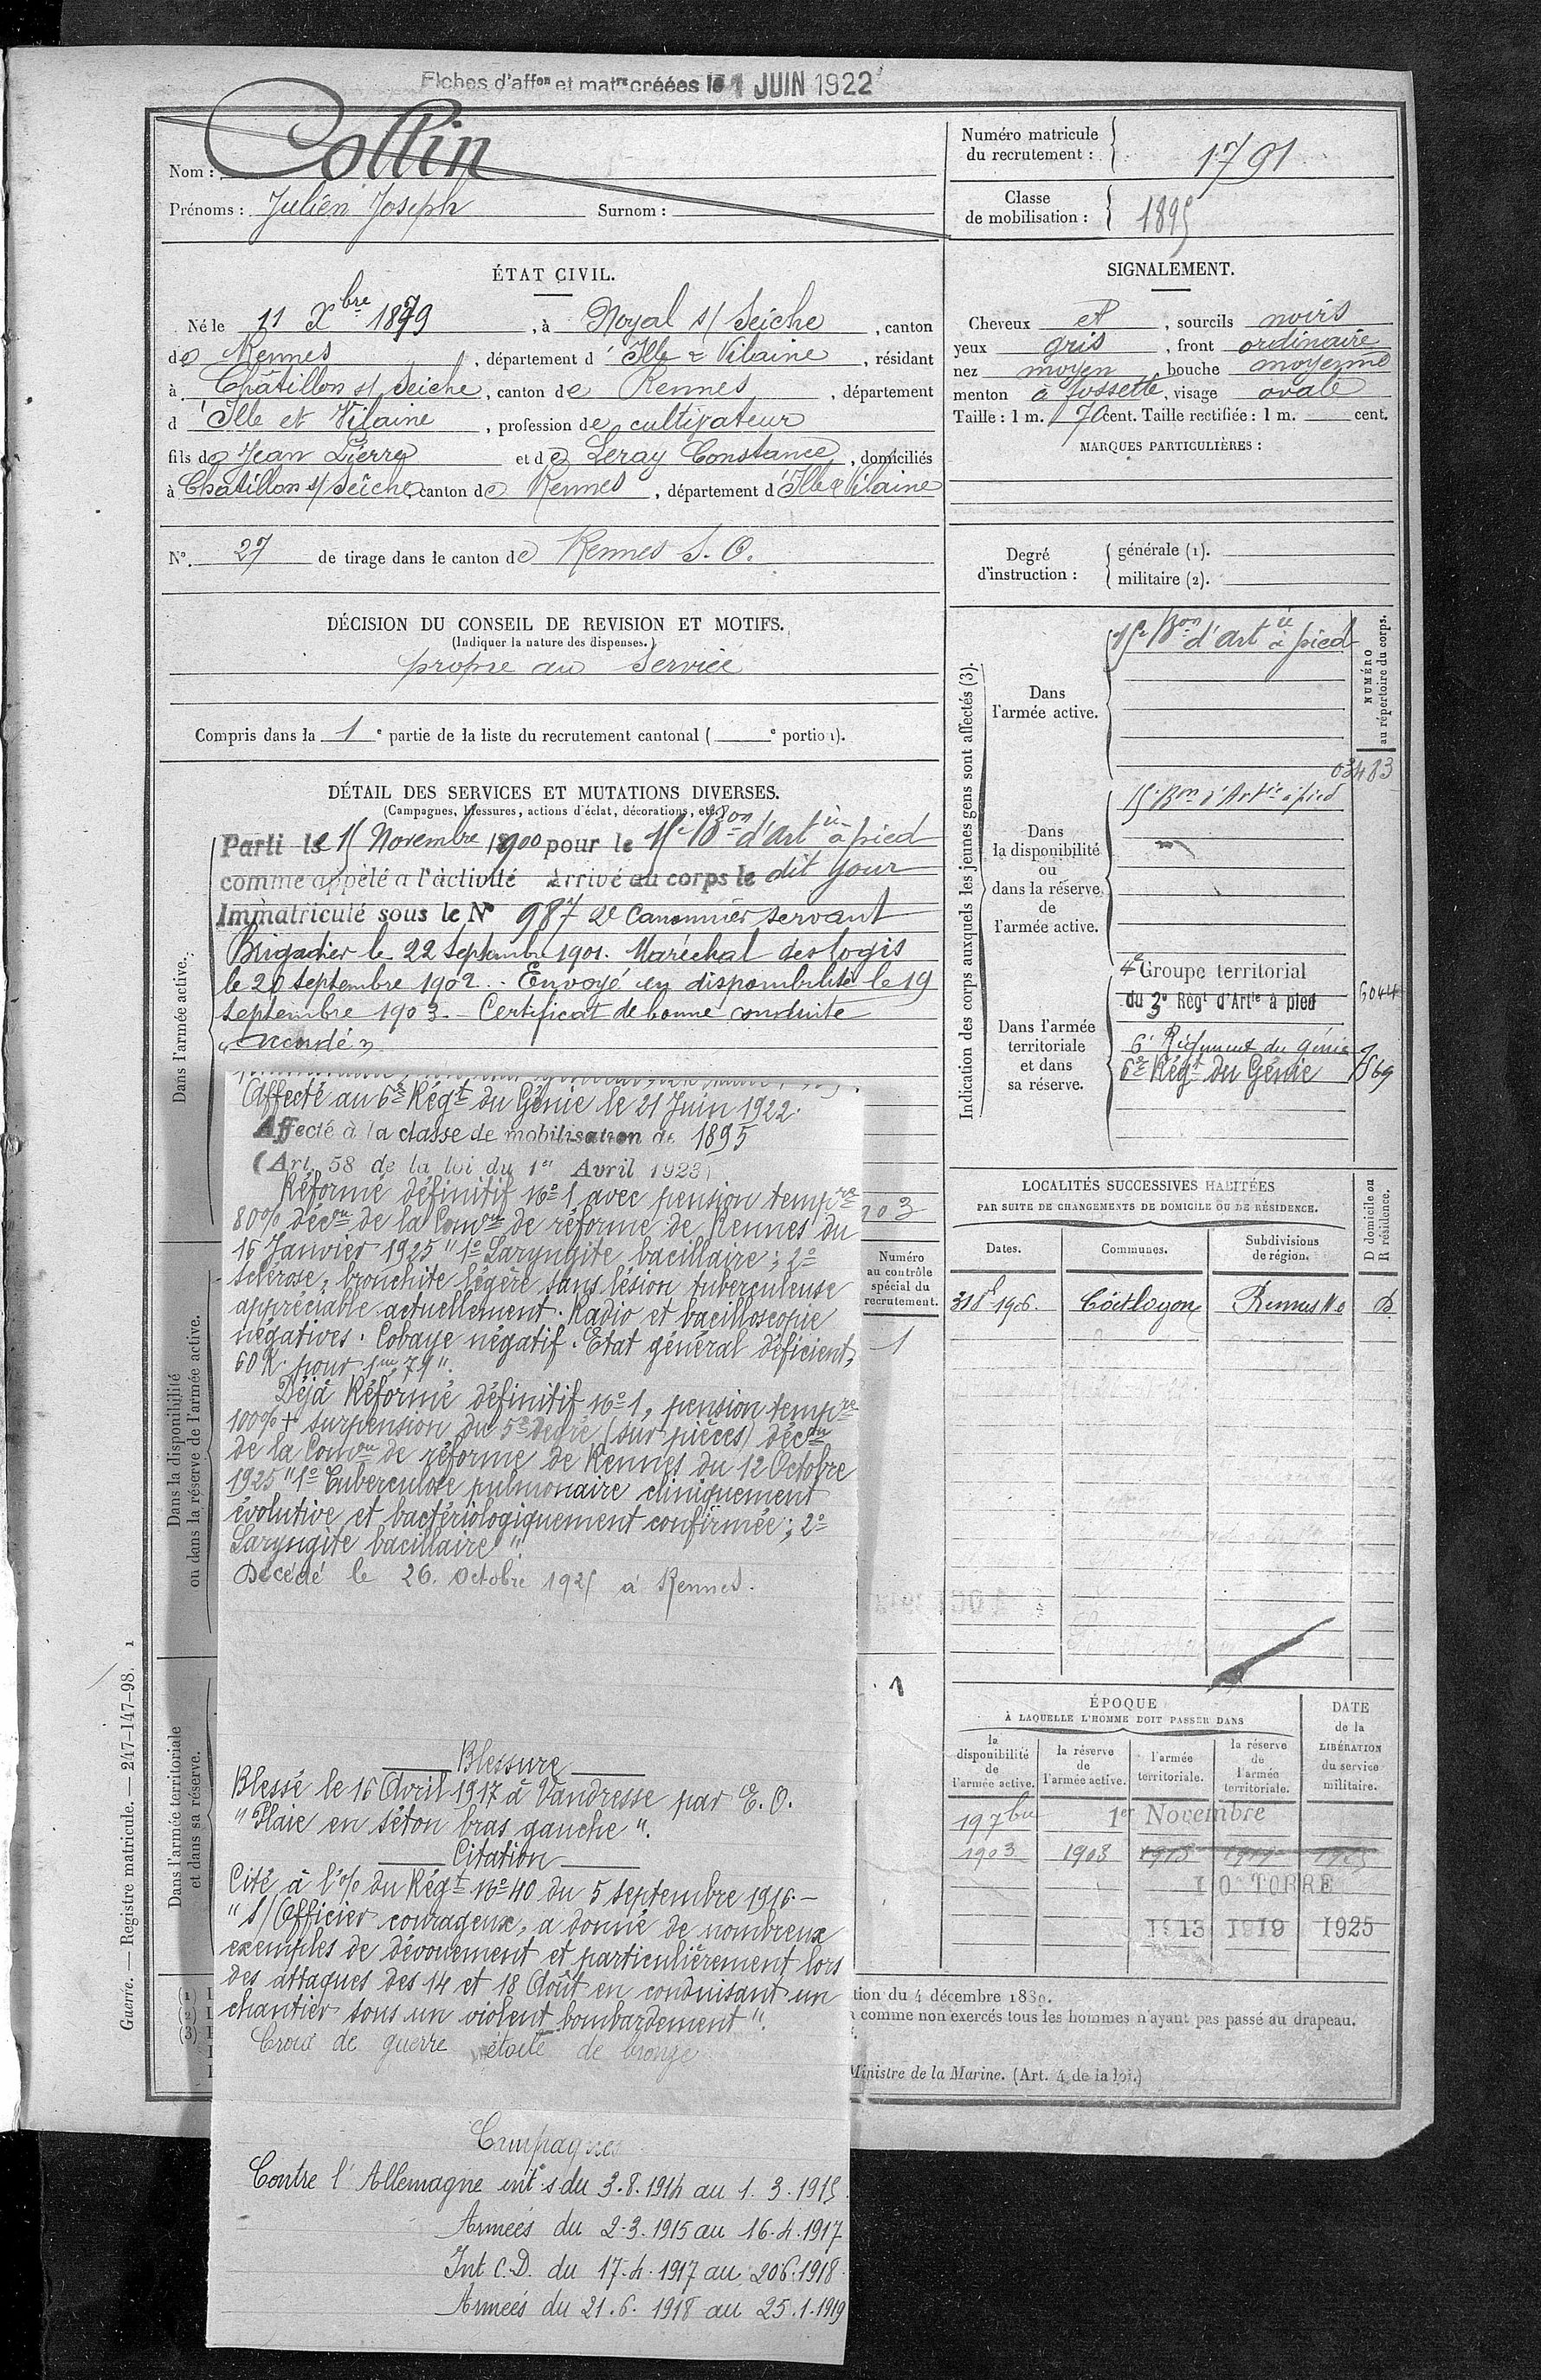 Fiches d'affon et matre créées le 1 JUIN 1922
Nom : Collin
Prénoms : Julien Joseph Surnom :
Numéro matricule du recrutement : 1791
Classe de mobilisation : 1895
ÉTAT CIVIL.
Né le 11 Xbre 1879, à Noyal s/ Seiche, canton
de Rennes, département d'Ille & Vilaine, résidant
à Châtillon s/ Seiche, canton de Rennes, département
d'Ille et Vilaine, profession de cultivateur
fils de Jean Pierre et de Leray Constance, domiciliés
à Chatillon s/ Seiche, canton de Rennes, département d'Ille & Vilaine
N°. 27 de tirage dans le canton de Rennes S. O.
SIGNALEMENT.
Cheveux et, sourcils noirs
yeux gris, front ordinaire
nez moyen bouche moyenne
menton à fossette, visage ovale
Taille : 1 m. 70 cent. Taille rectifiée : 1 m. cent.
MARQUES PARTICULIÈRES :
Degré d'instruction :
générale (1).
militaire (2).
DÉCISION DU CONSEIL DE REVISION ET MOTIFS.
(Indiquer la nature des dispenses.)
propre au service
Compris dans la 1e partie de la liste du recrutement cantonal ( e portion).
DÉTAIL DES SERVICES ET MUTATIONS DIVERSES.
(Campagnes, blessures, actions d'éclat, décorations, etc.)
Dans l'armée active.
Parti le 15 Novembre 1900 pour le 15e Bon d'Artie à pied
comme appelé à l'activité Arrivé au corps le dit jour
Immatriculé sous le N° 987 2e Canonnier servant
Brigadier le 22 Septembre 1901. Maréchal des logis
le 20 septembre 1902. Envoyé en disponibilité le 19
septembre 1903. Certificat de bonne conduite
"Accordé"
Affecté au 6e Régt du Génie le 21 Juin 1922.
Affecté à la classe de mobilisation de 1895
(Art. 58 de la loi du 1er Avril 1923)
Réformé définitif No 1 avec pension tempre
80% décon de la Comon de réforme de Rennes du
16 Janvier 1925 "1o Laryngite bacillaire ; 2o
sclérose, bronchite légère sans lésion tuberculeuse
appréciable actuellement. Radio et bacilloscopie
négatives. Cobaye négatif. Etat général déficient,
60 K pour 1m,79".
Déjà Réformé définitif No 1, pension tempre
100% + surpension du 5e degré (sur pièces) décon
de la Comon de réforme de Rennes du 12 Octobre
1925 "1o Tuberculose pulmonaire cliniquement
évolutive et bactériologiquement confirmée ; 2o
Laryngite bacillaire".
Décédé le 26 Octobre 1925 à Rennes.
Blessure
Blessé le 16 Avril 1917 à Vandresse par E. O.
"Plaie en séton bras gauche".
Citation
Cité à l'% du Régt No 40 du 5 septembre 1916.-
"S/Officier courageux, a donné de nombreux
exemples de dévouement et particulièrement lors
des attaques des 14 et 18 Août en conduisant un
chantier sous un violent bombardement".
Croix de guerre étoile de bronze
Campagnes
Contre l'Allemagne int s du 3.8.1914 au 1.3.1915
Armées du 2-3.1915 au 16.4.1917
Int C.D. du 17.4.1917 au 20.6.1918
Armées du 21.6.1918 au 25.1.1919
Dans la disponibilité ou dans la réserve de l'armée active.
Dans l'armée territoriale et dans sa réserve.
Numéro au contrôle spécial du recrutement.
1
1
Indication des corps auxquels les jeunes gens sont affectés (3).
NUMÉRO au répertoire du corps.
Dans l'armée active.
15e Bon d'Artie à pied
03483
Dans la disponibilité ou dans la réserve de l'armée active.
15e Bon d'Artie à pied
Dans l'armée territoriale et dans sa réserve.
4e Groupe territorial
du 3e Régt d'Artie à pied
6e Régiment du Génie
6e Régt du Génie
LOCALITÉS SUCCESSIVES HABITÉES
PAR SUITE DE CHANGEMENTS DE DOMICILE OU DE RÉSIDENCE.
Dates. Communes. Subdivisions de région. D domicile ou R résidence.
Coëtlogon Rennes D
ÉPOQUE
À LAQUELLE L'HOMME DOIT PASSER DANS
la disponibilité de l'armée active. la réserve de l'armée active. l'armée territoriale. la réserve de l'armée territoriale. DATE de la LIBÉRATION du service militaire.
19 7bre 1er Novembre
1903 1908
1 O TORRE
1913 1919 1925
tion du 4 décembre 1889.
comme non exercés tous les hommes n'ayant pas passé au drapeau.
Ministre de la Marine. (Art. 4 de la loi.)
Guerre. — Registre matricule. — 247-147-98. 1